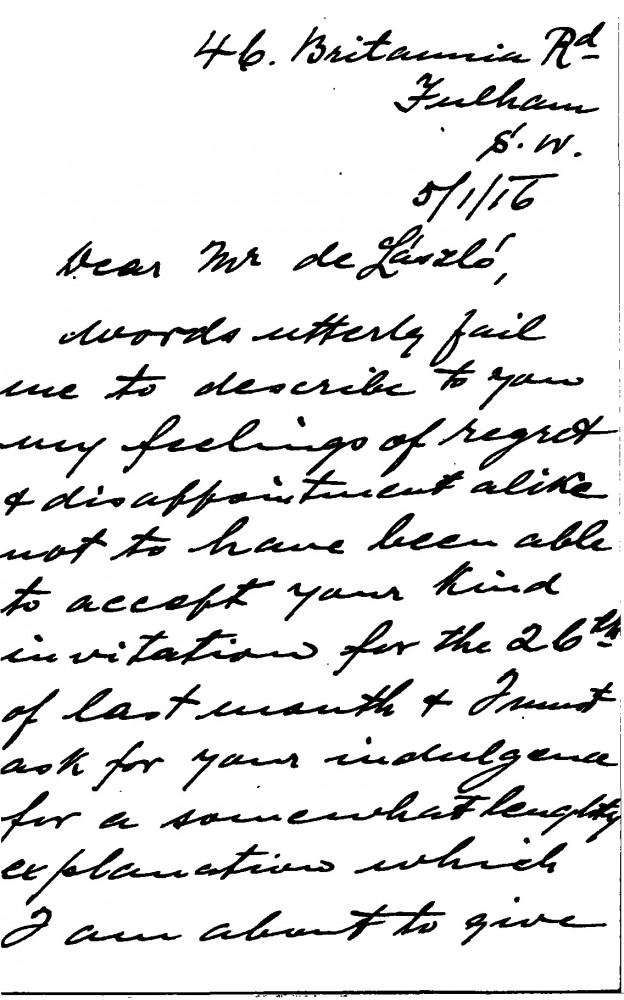 46. Britannia Rd
Fulham
S. W.
5/1/16
Dear Mr de László,
Words utterly fail
me to describe to you
my feelings of regret
& disappointment alike
not to have been able
to accept your kind
invitation for the 26th
of last month & I must
ask for your indulgence
for a somewhat lenghty
explanation which
I am about to give